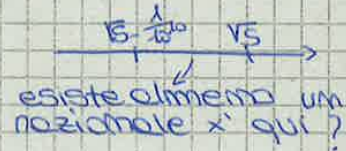 √5 - 1/10¹⁰ √5
esiste almeno un
razionale x' qui ?